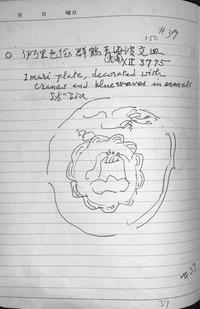 月 日 曜日
#39
150
○ 伊里色絵群鶴青海波文皿
XII 3775
Imari plate, decorated with
cranes and blue waves in enamels
Dia
#39
37